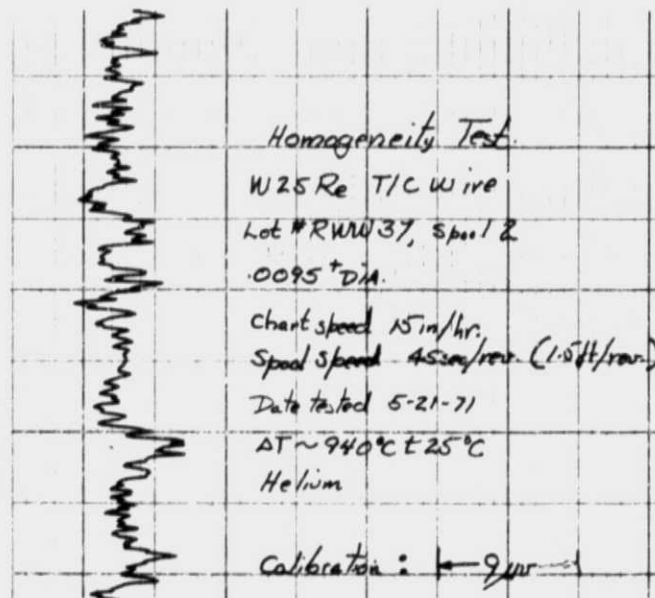 Homogeneity Test.
W25Re T/C Wire
Lot # RWW37, Spool 2
.0095" DIA.
Chart speed 15in/hr.
Spool Speed 45sec/rev. (1.5ft/rev.)
Date tested 5-21-71
ΔT ~ 940°C ± 25°C
Helium
Calibration : 9 μv